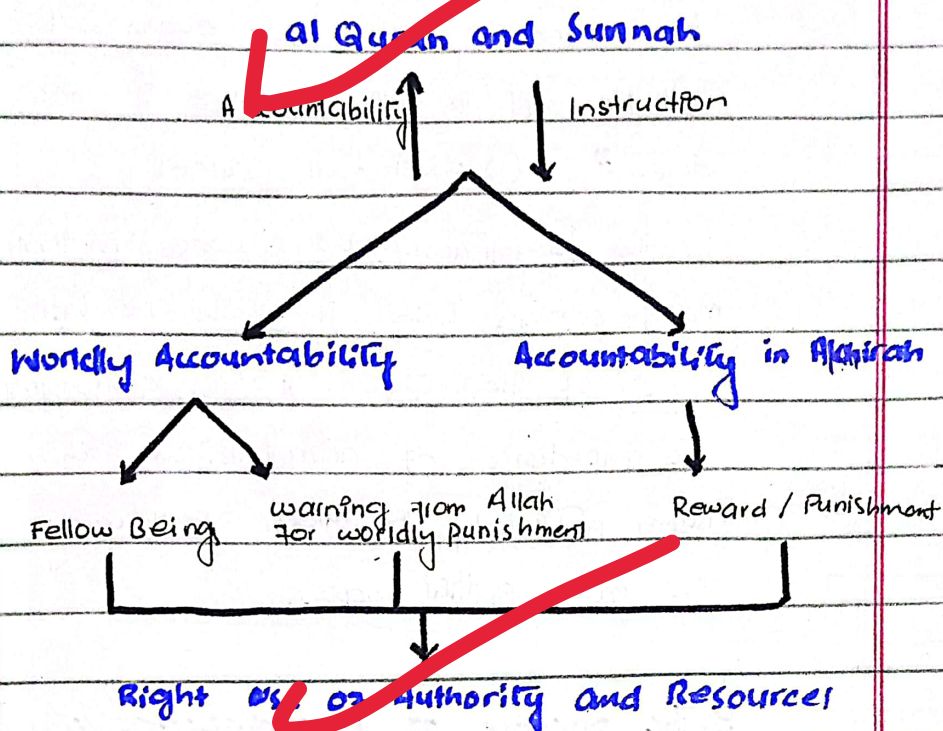 al Quran and Sunnah
Accountability Instruction
Worldly Accountability Accountability in Akhirah
Fellow Being warning from Allah Reward / Punishment
for worldly punishment
Right use of Authority and Resources